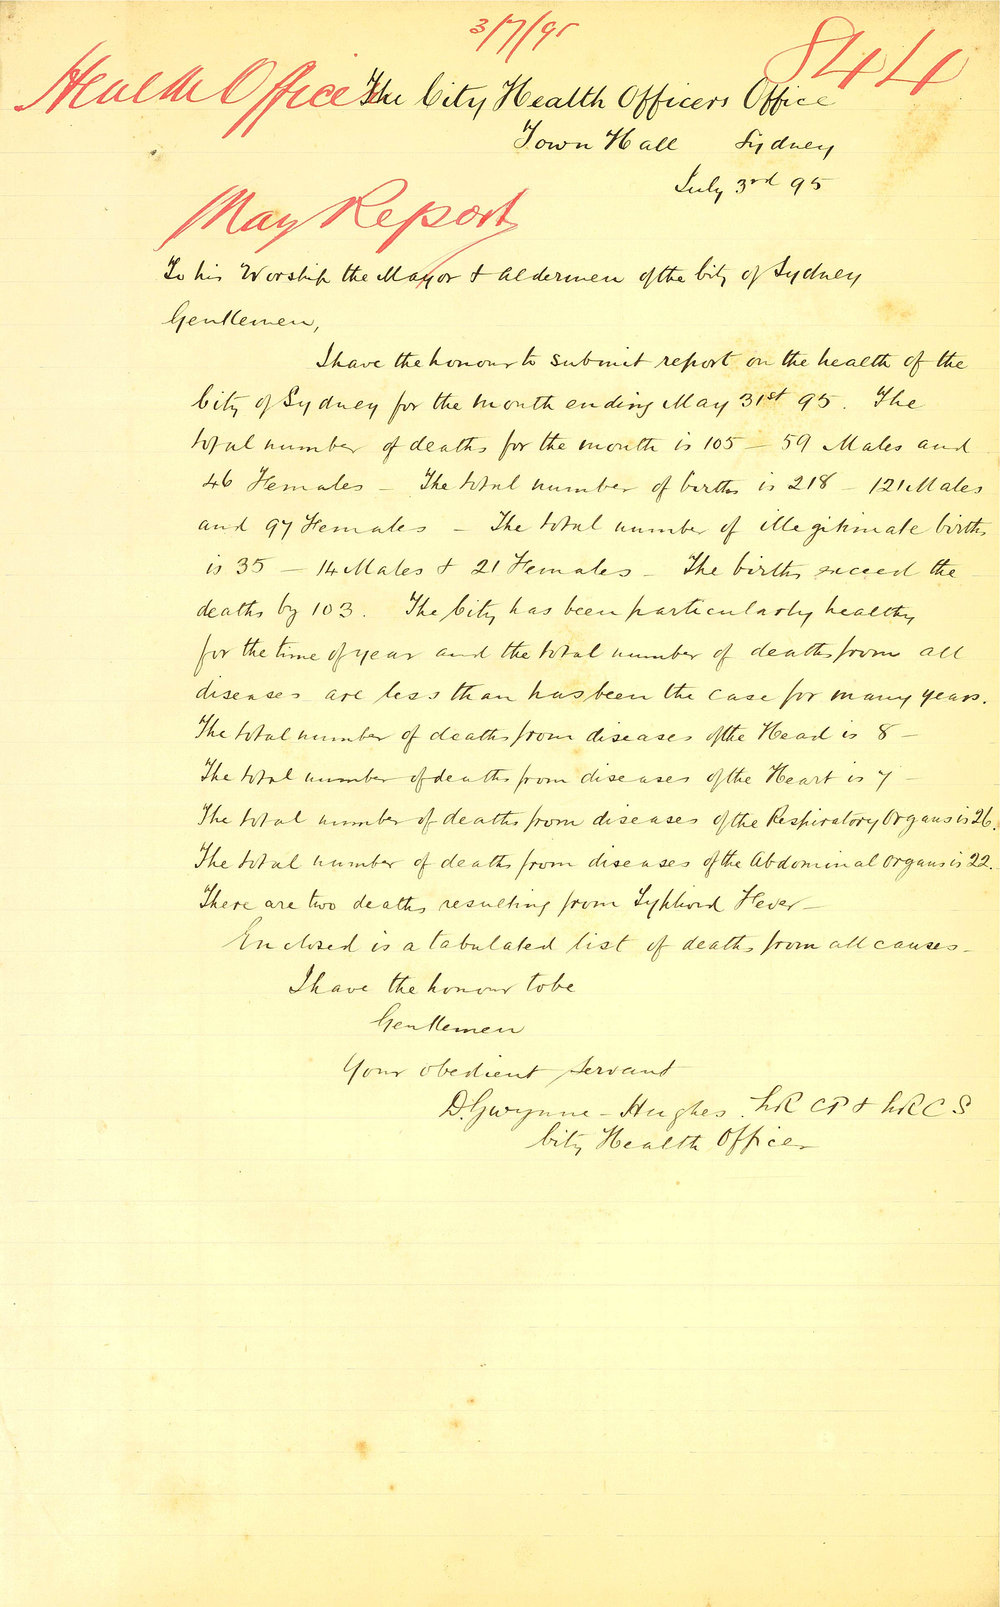 3/7/95
844
Health Office
The City Health Officers Office
Town Hall Sydney
July 3rd 95
May Report
To his Worship the Mayor & Aldermen of the City of Sydney
Gentlemen,
I have the honour to submit report on the health of the
City of Sydney for the month ending May 31st 95. The
total number of deaths for the month is 105 – 59 Males and
46 Females – The total number of births is 218 – 121 Males
and 97 Females – The total number of illegitimate births
is 35 – 14 Males & 21 Females – The births exceed the
deaths by 103. The City has been particularly healthy
for the time of year and the total number of deaths from all
diseases are less than has been the case for many years.
The total number of deaths from diseases of the Head is 8 –
The total number of deaths from diseases of the Heart is 7 –
The total number of deaths from diseases of the Respiratory Organs is 26.
The total number of deaths from diseases of the Abdominal Organs is 22.
There are two deaths resulting from Typhoid Fever –
Enclosed is a tabulated list of deaths from all causes –
I have the honour to be
Gentlemen
Your obedient servant
D. Gwynne – Hughes. LRCP & LRCS
City Health Officer